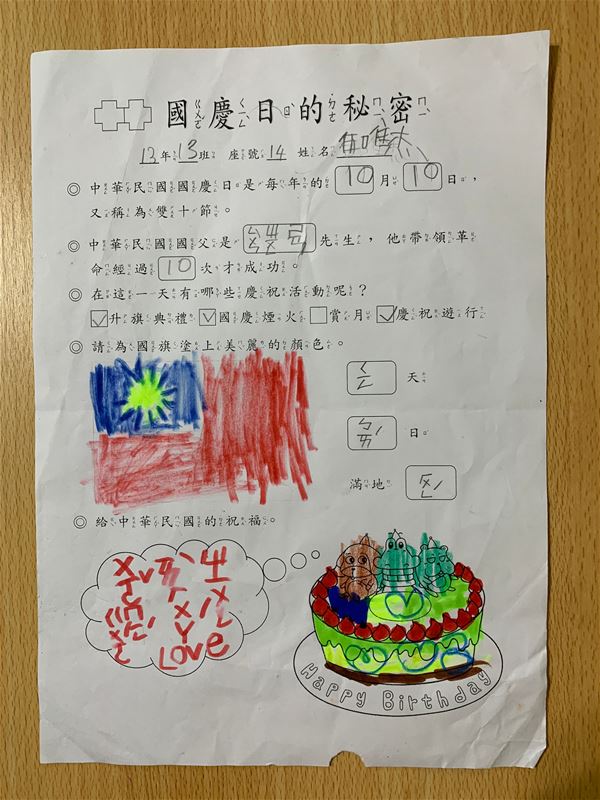 國慶日的秘密
12年13班 座號14 姓名
◎ 中華民國國慶日是每年的10月10日，
又稱為雙十節。
◎ 中華民國國父是先生，他帶領革
命經過10次才成功。
◎ 在這一天有哪些慶祝活動呢？
☑升旗典禮 ☑國慶煙火 □賞月 ☑慶祝遊行
◎ 請為國旗塗上美麗的顏色。
ㄑㄥ 天
ㄅㄞˊ 日
滿地 ㄏㄨㄥˊ
◎ 給中華民國的祝福。
LOVE
Happy Birthday